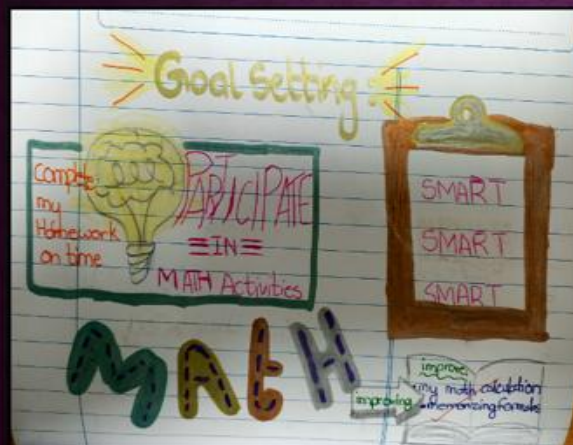 Goal Setting:
Complete
my
Homework
on time
PARTICIPATE
IN
MATH Activities
SMART
SMART
SMART
MAtH
improving
improve
my math calculation
memorizing formula